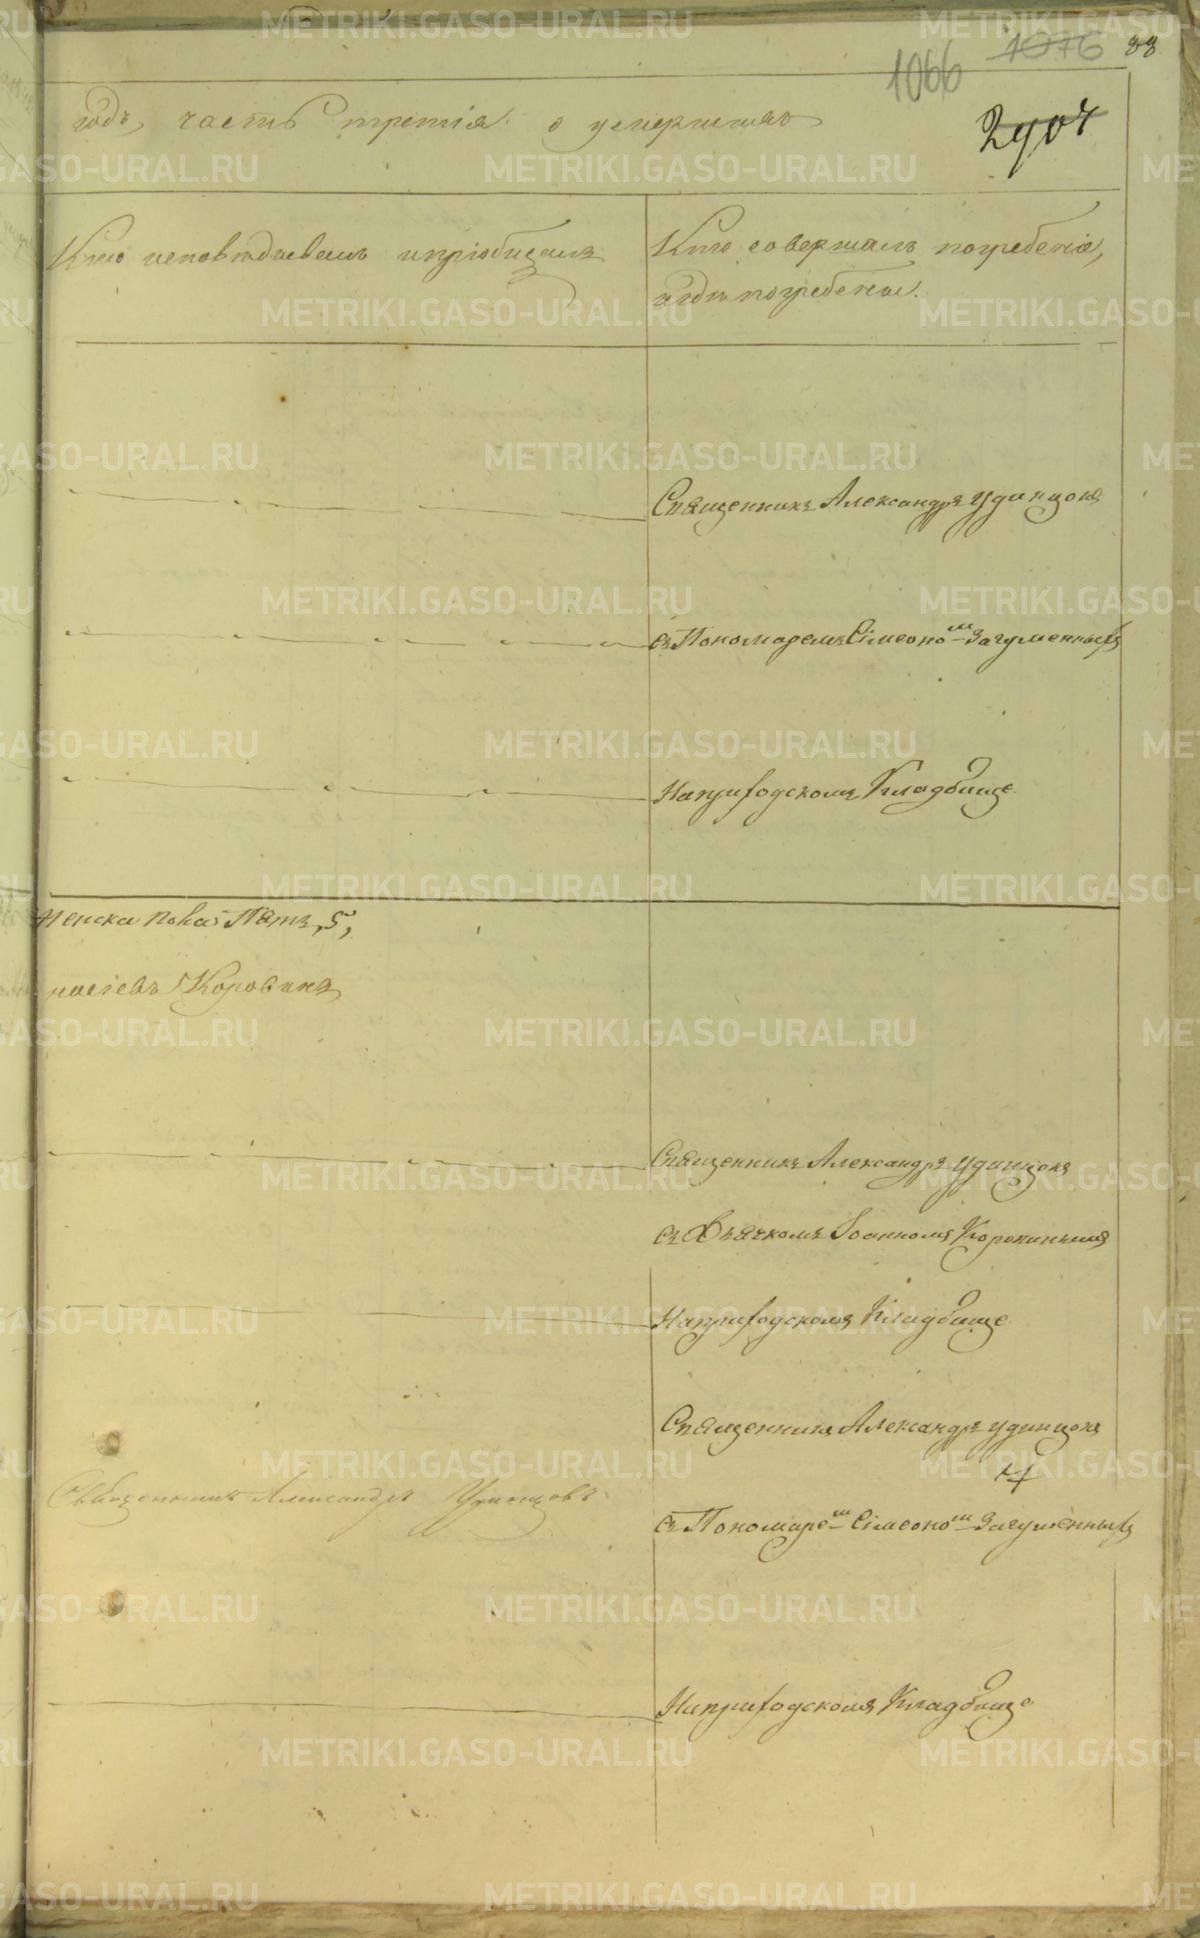 1076 88
1066
годъ, часть третія о умершихъ
2904
Кто исповѣдывалъ и пріобщалъ
Кто совершалъ погребеніе,
и гдѣ погребены.
Священникъ Александръ Удинцовъ
съ Пономаремъ Сімеономъ Загуменныхъ
На приходскомъ Кладбище
женска пола Пять, 5,
Коровинъ
Священникъ Александръ Удинцовъ
съ Дьячкомъ Іоанномъ Коровинымъ
На приходскомъ Кладбище
Священникъ Александръ Удинцовъ
Священникъ Александръ Удинцовъ
съ Пономаремъ Сімеономъ Загуменныхъ
На приходскомъ Кладбище
METRIKI.GASO-URAL.RU